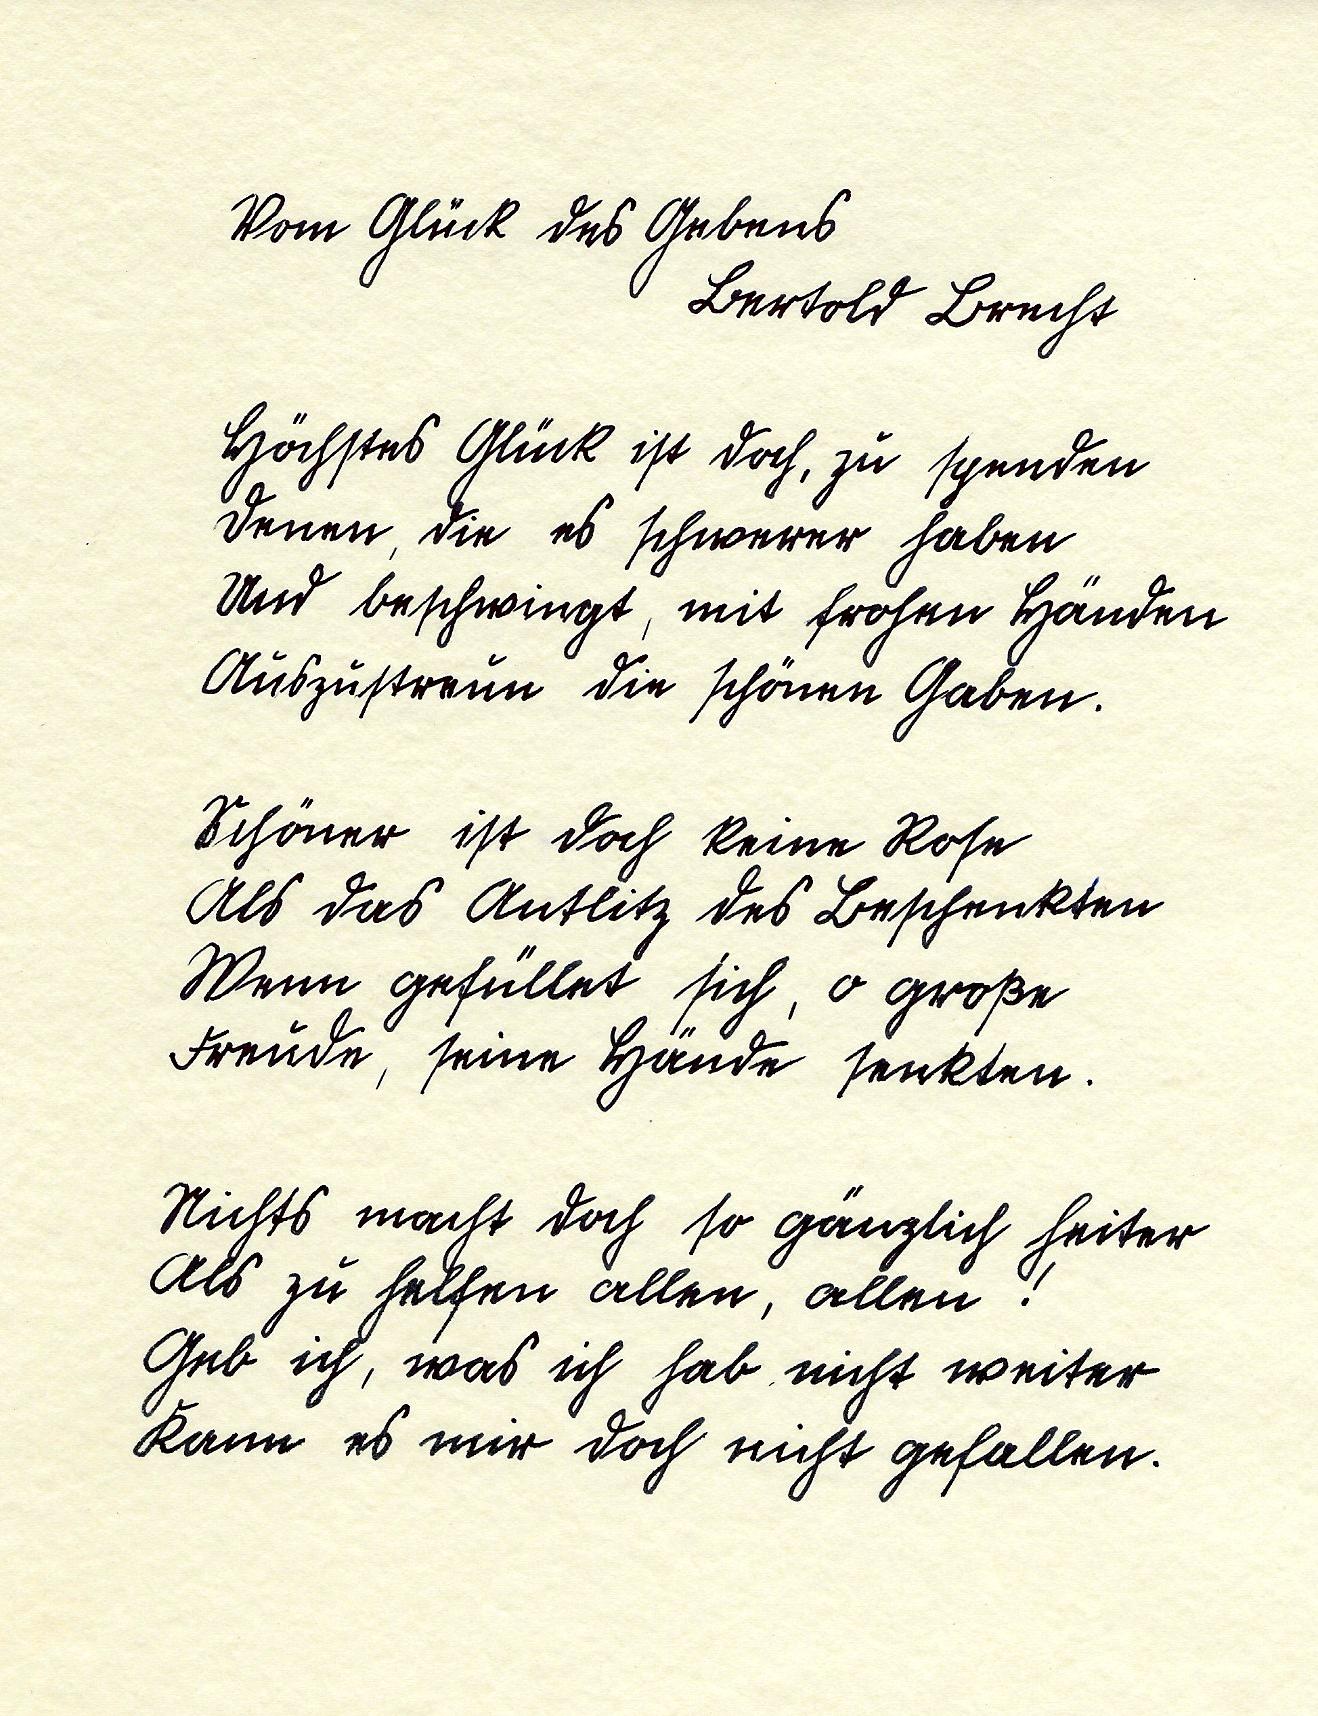 Vom Glück des Gebens
Bertold Brecht
Höchstes Glück ist doch, zu spenden
Denen, die es schwerer haben
Und beschwingt, mit frohen Händen
Auszustreun die schönen Gaben.
Schöner ist doch keine Rose
Als das Antlitz des Beschenkten
Wenn gefüllet sich, o große
Freude, seine Hände senkten.
Nichts macht doch so gänzlich heiter
Als zu helfen allen, allen!
Geb ich, was ich hab nicht weiter
Kann es mir doch nicht gefallen.